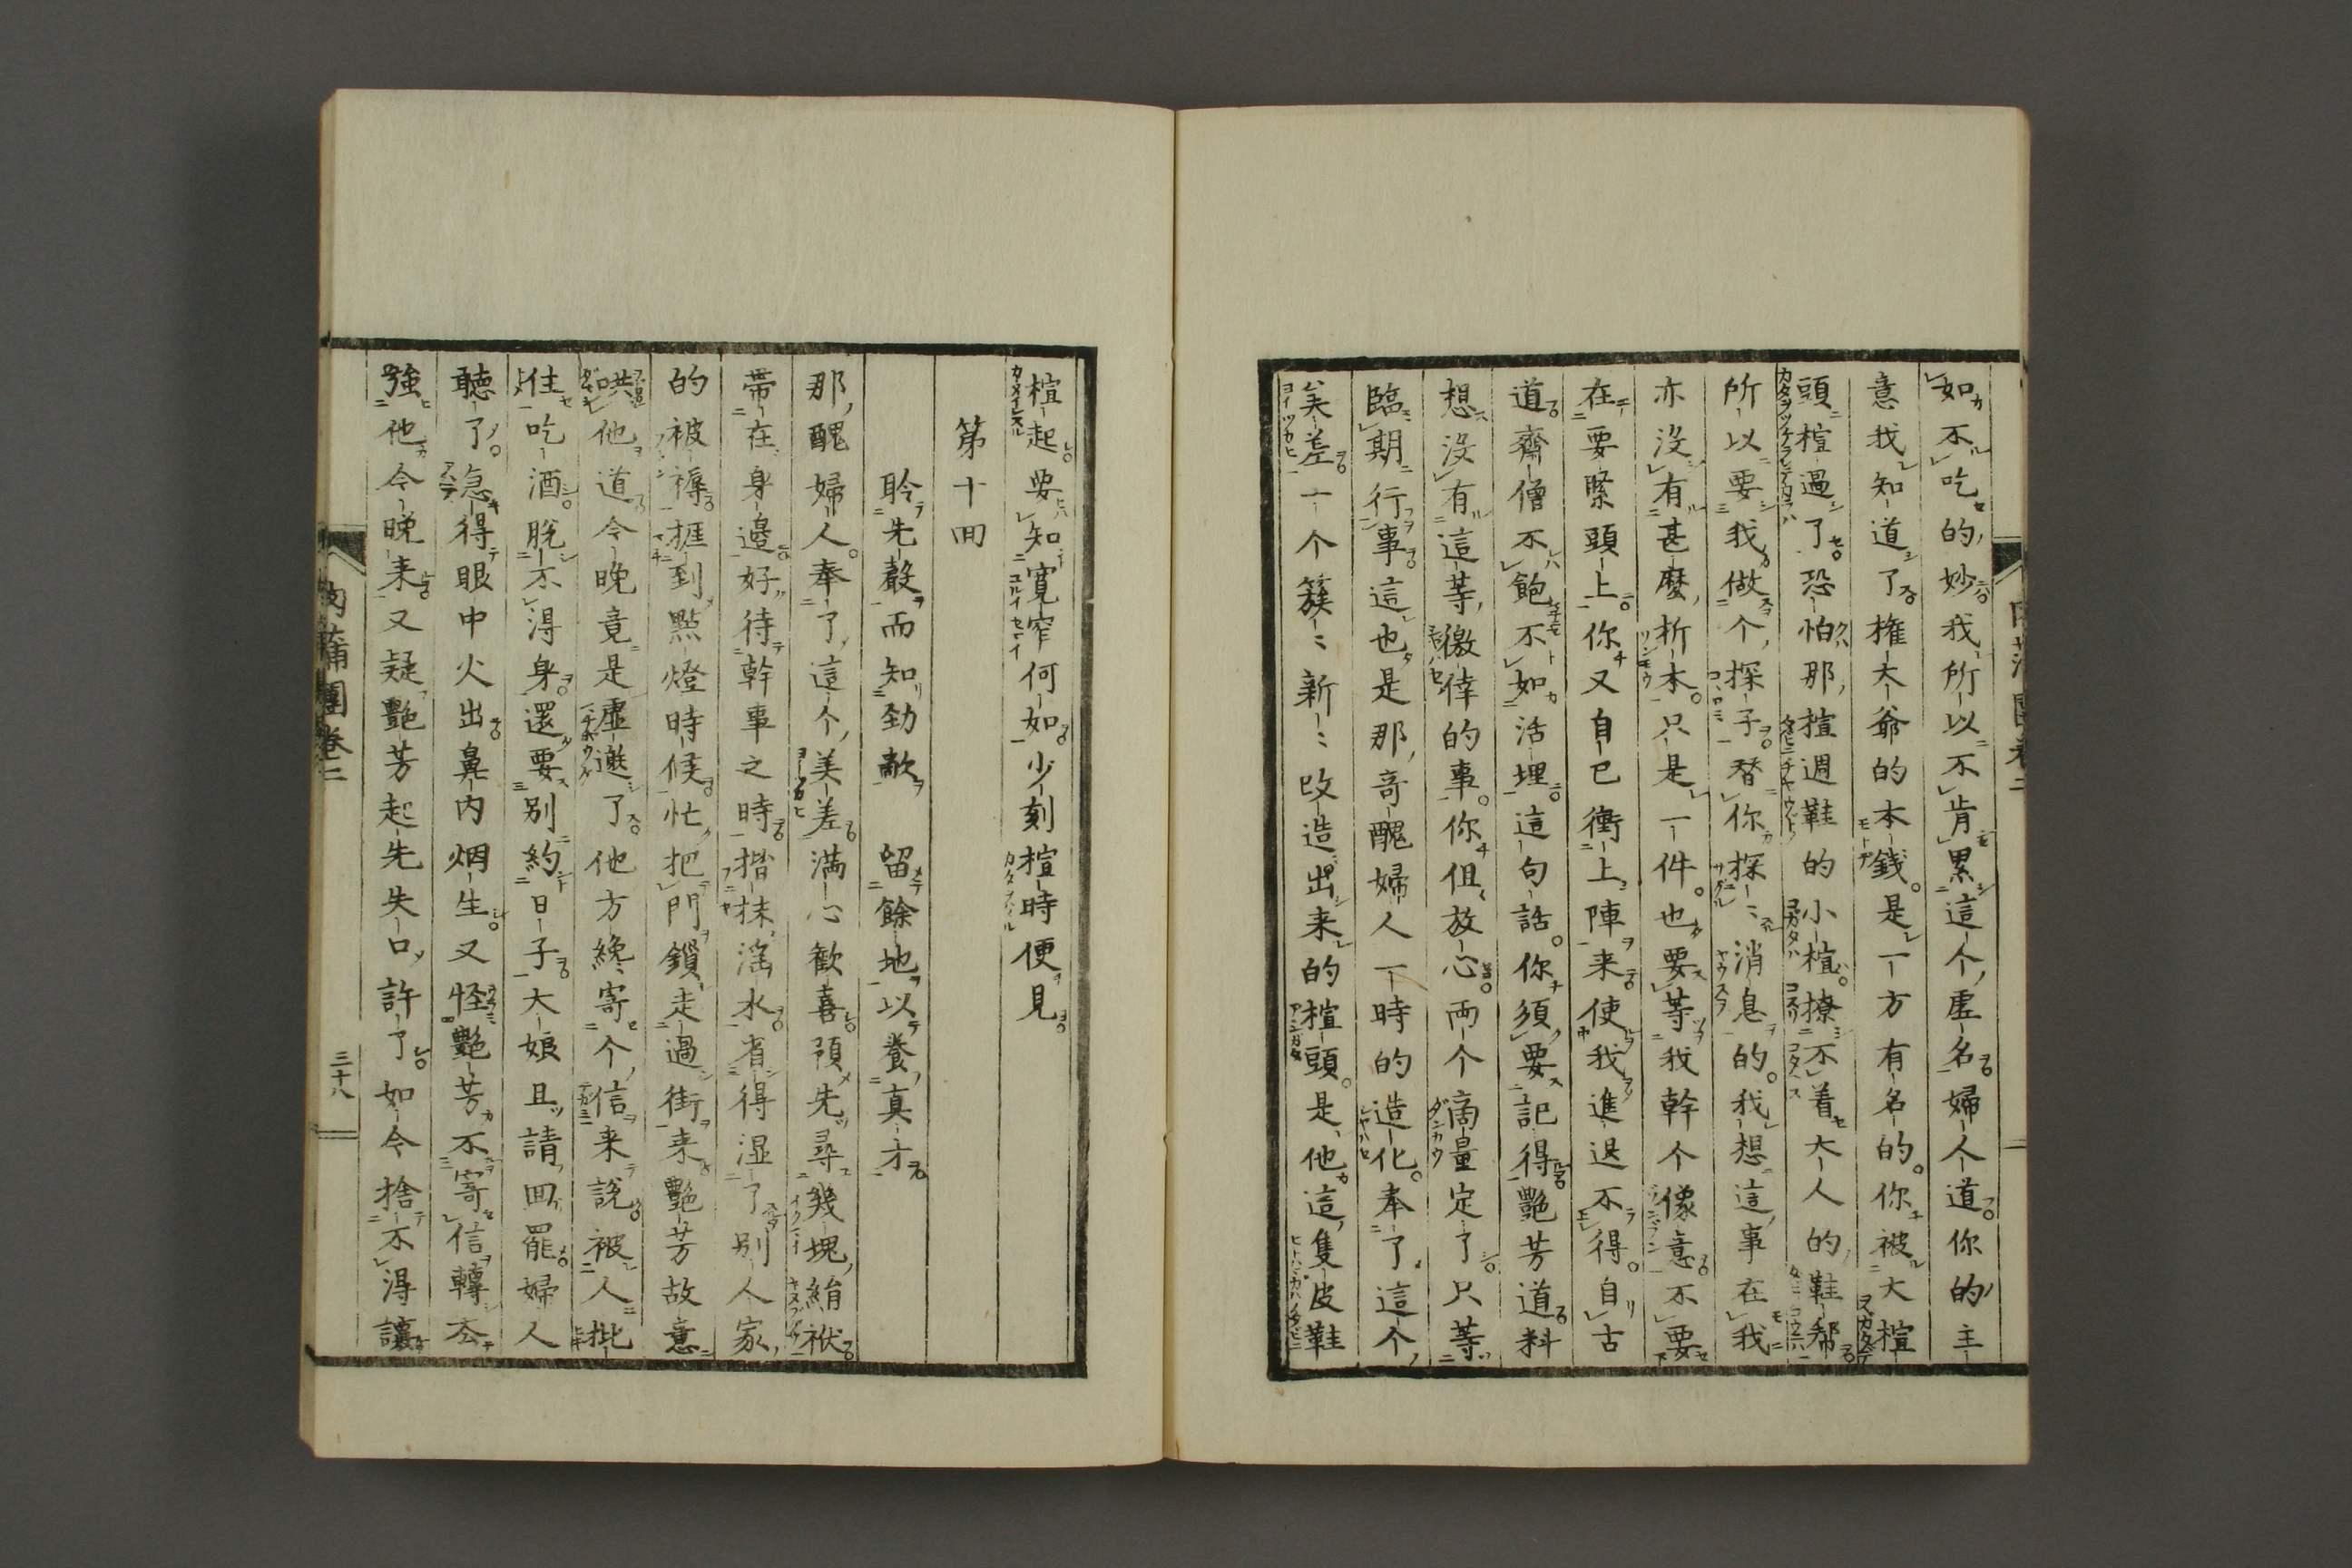 如不吃的妙我所以不肯累這个虛名婦人道你的主
意我知道了権大爺的本錢是一方有名的你被大楦
頭楦過了恐怕那楦過鞋的小楦撩不着大人的鞋幇
所以要我做个探子替你探〻消息的我想這事在我
亦没有甚麼折本只是一件也要等我幹个像意不要
在要緊頭上你又自已衝上陣来使我進退不得自古
道齋僧不飽不如活埋這句話你須要記得艷芳道料
想没有這等徼倖的事你但放心両个啇量定了只等
臨期行事這也是那竒醜婦人一時的造化奉了這个
美差一个簇〻新〻改造出来的楦頭是他這隻皮鞋
楦起要知寛窄何如少刻楦時便見
第十囬
聆先聲而知勁敵　留餘地以養真才
那醜婦人奉了這个美差満心歡喜預先尋幾塊絹袱
帶在身邉好待幹事之時揩抹滛水省得湿了別人家
的被褥捱到點燈時候忙把門鎖走過街来艷芳故意
哄他道今晚竟是虛邀了他方纔寄个信来説被人扯
住吃酒脱不得身還要別約日子大娘且請囬罷婦人
聴了急得眼中火出鼻内烟生又怪艷芳不寄信轉去
強他今晚来又疑艷芳起先失口許了如今捨不得讓
肉蒲團巻二
三十八